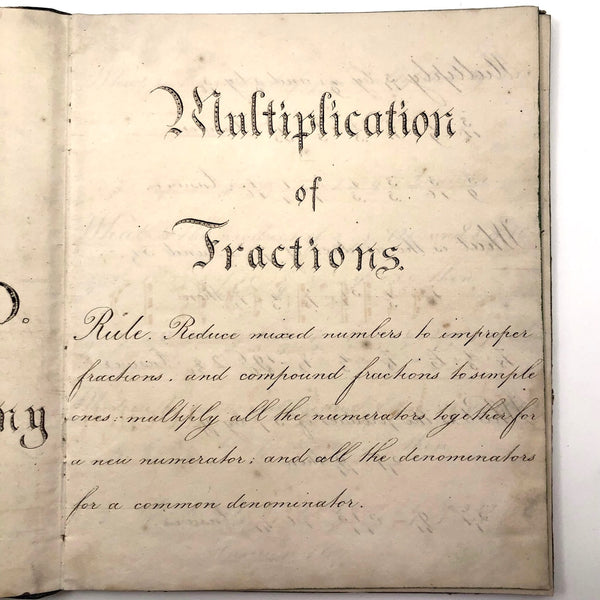 Multiplication
of
Fractions.
Rule. Reduce mixed numbers to improper
fractions, and compound fractions to simple
ones: multiply all the numerators together for
a new numerator; and all the denominators
for a common denominator.